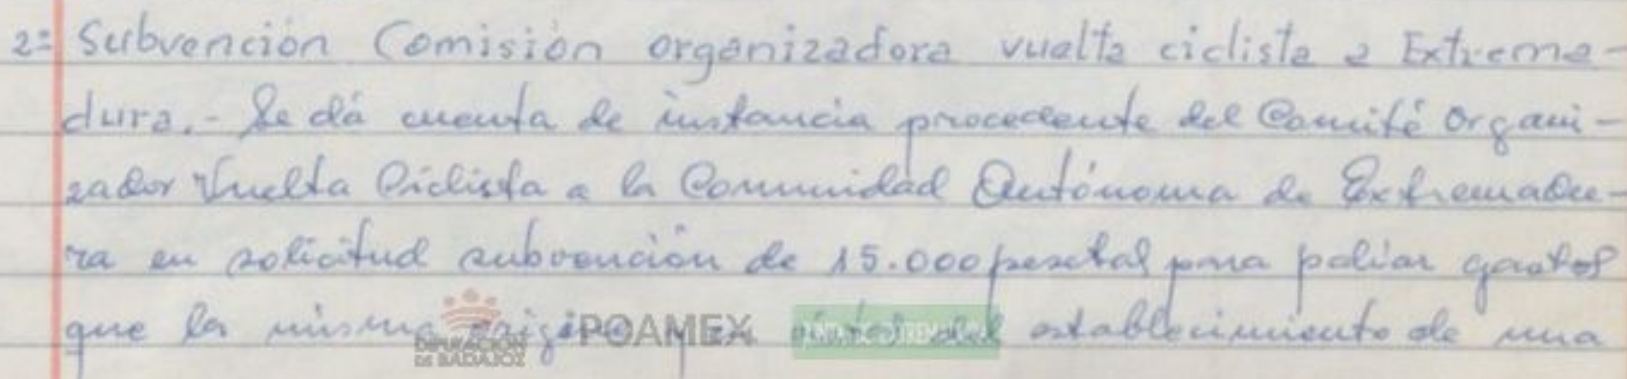 2º Subvención Comisión organizadora vuelta ciclista a Extrema-
dura.- Se dá cuenta de instancia procedente del Comité Organi-
zador Vuelta Ciclista a la Comunidad Autónoma de Extremadu-
ra en solicitud subvención de 15.000 pesetas para paliar gastos
que la misma del establecimiento de una
DIPUTACIÓN DE BADAJOZ POAMEX